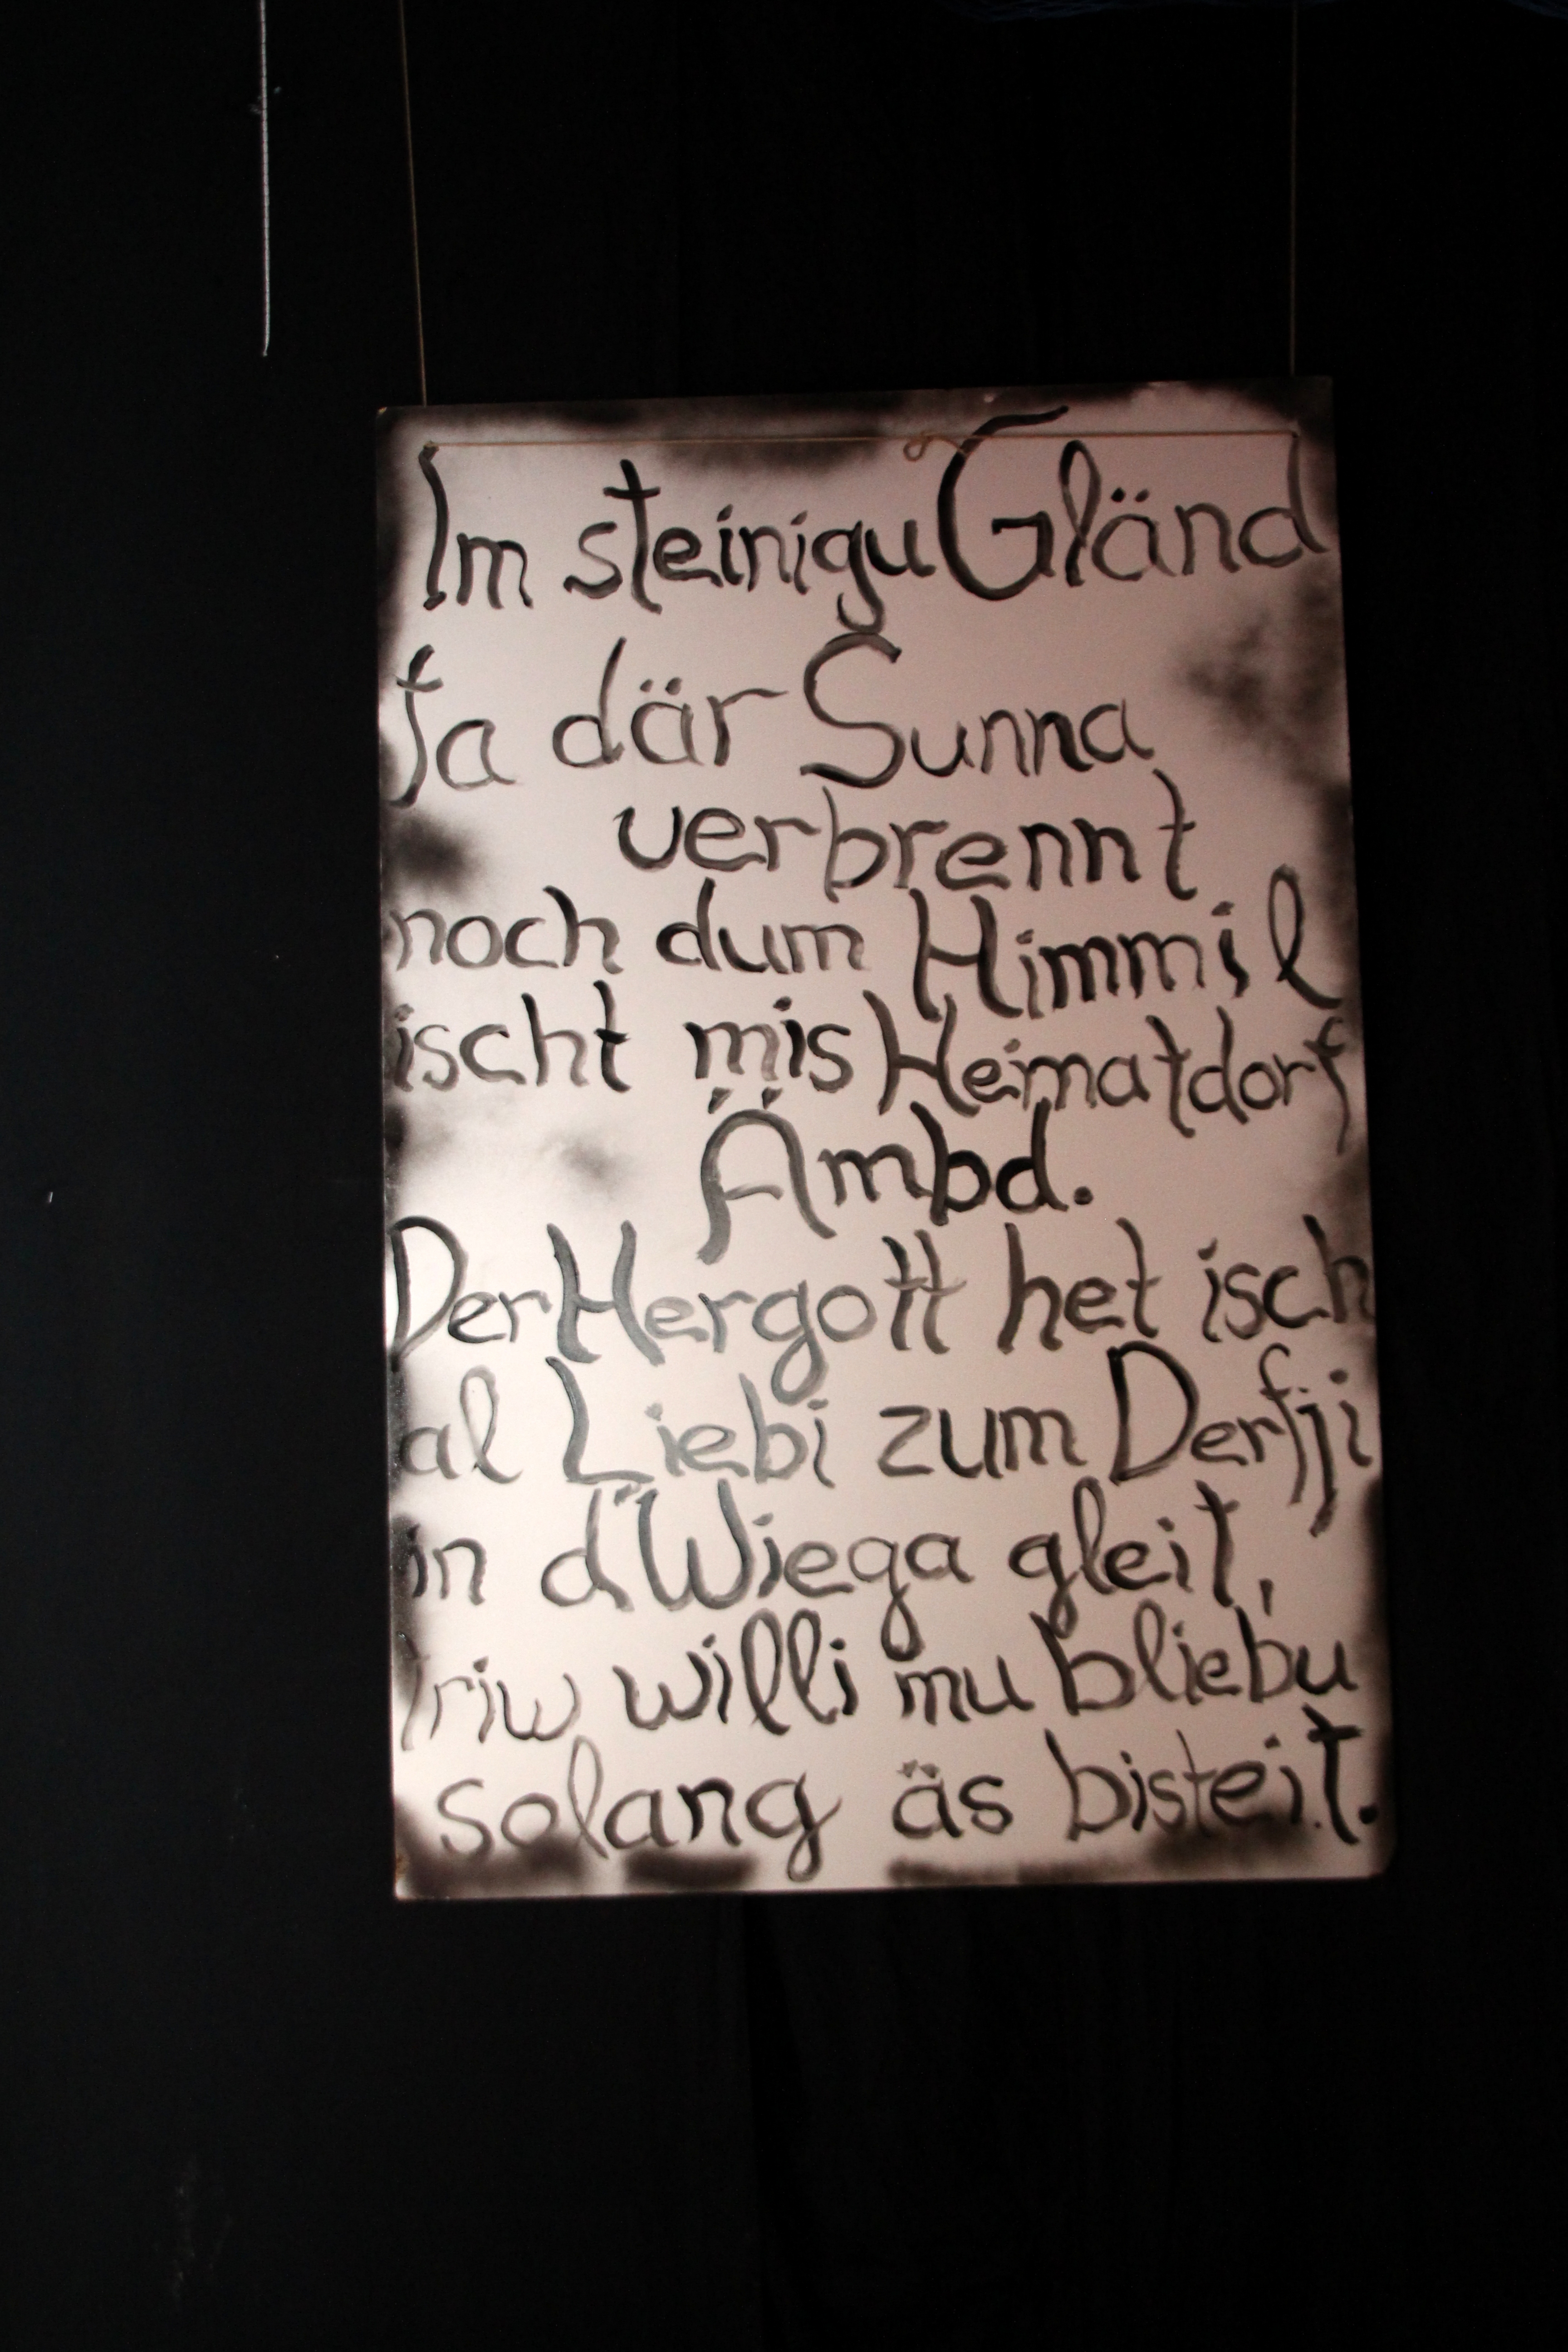 Im steinigu Gländ
fa där Sunna
verbrennt
noch dum Himmil
ischt mis Heimatdorf
Ämbd.
Der Hergott het isch
al Liebi zum Derfji
in d'Wiega gleit,
willi mu bliebu
solang äs bisteit.